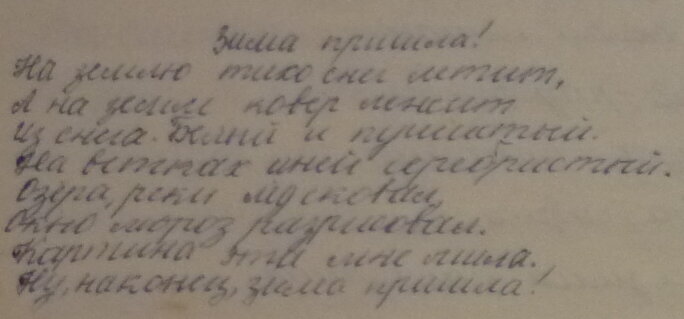 Зима пришла!
На землю тихо снег летит,
А на земле ковёр лежит
Из снега. Белый и пушистый.
На ветках иней серебристый.
Озёра, реки сковал,
Окно мороз разрисовал.
Картина эта мне мила.
Ну, наконец, зима пришла!